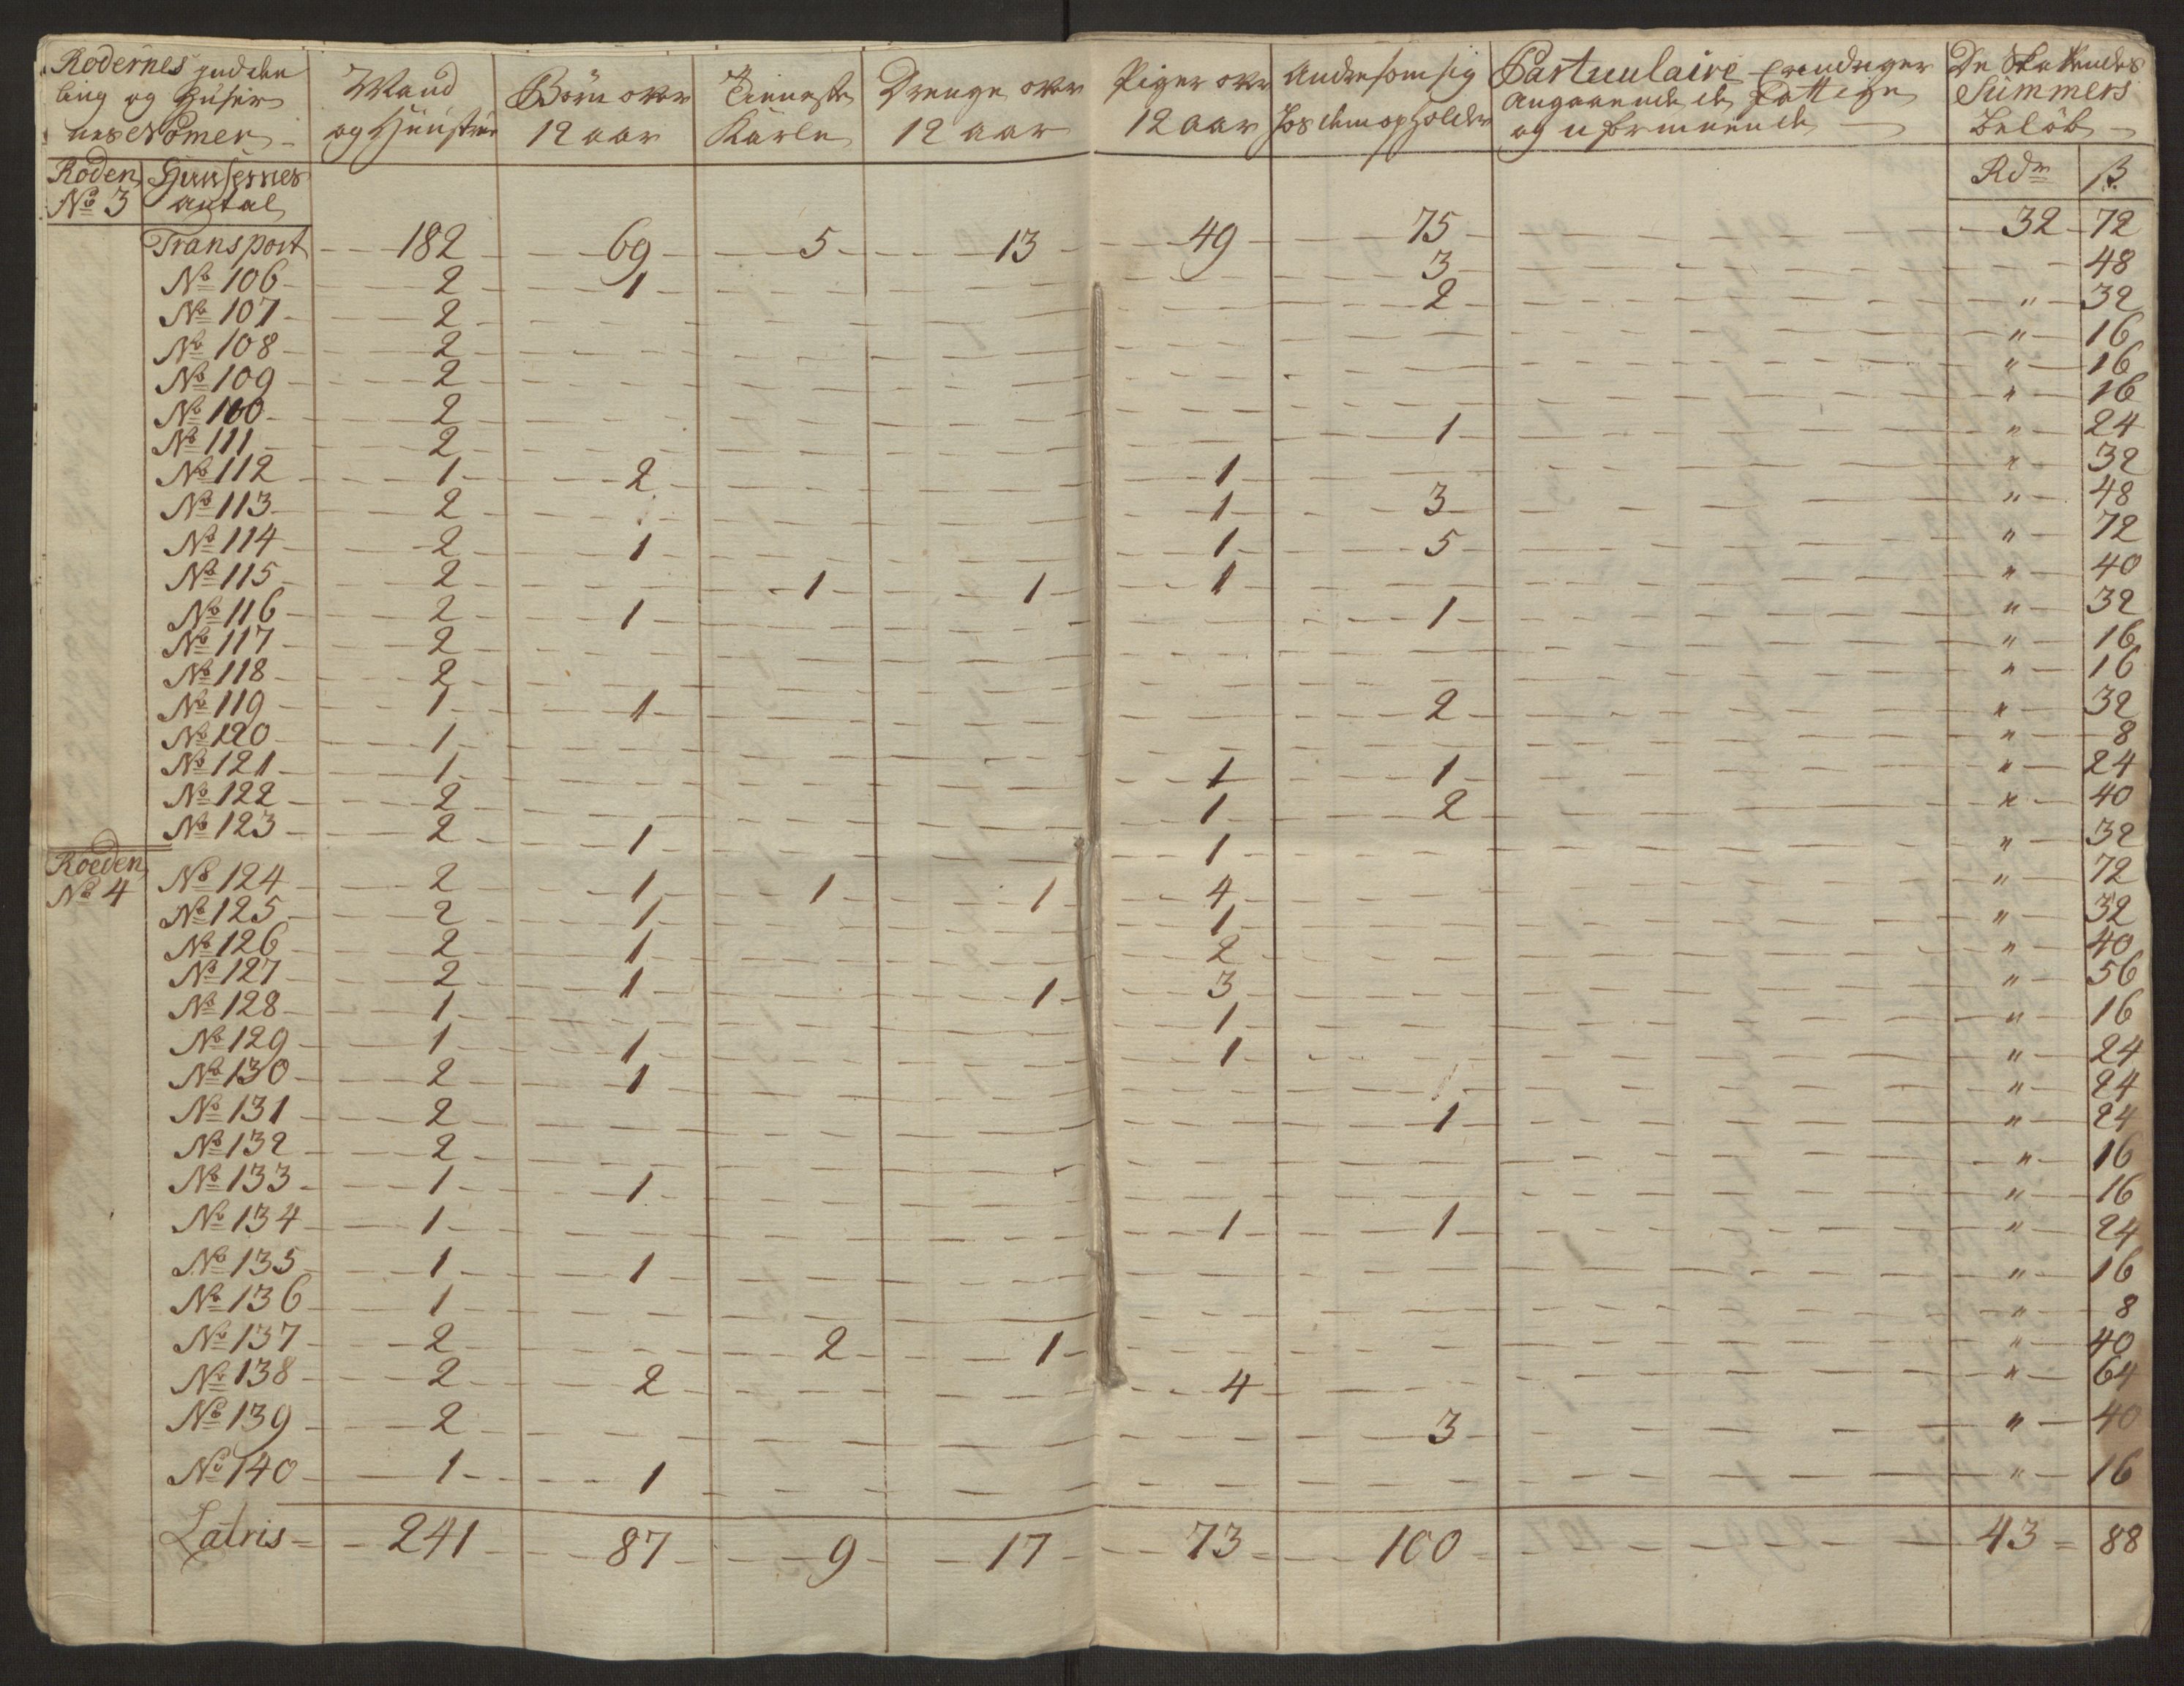 Rodernes Inddee
ling og Huser
nes Nomer
Mand
og Hustrue
Börn over
12 aar
Tieneste
Karle
Drenge over
12 aar
Piger over
12 aar
Andre som sig
hos dem opholder
Particulaire Erindringer
Angaaende de Fattige
og uformuende
De Skattendes
Summers
Belöb
Roden No 3 Huusernes antal Rdr ß
Transport 182 69 5 13 49 75 32 72
No 106 2 1 3 48
No 107 2 2 " 32
No 108 2 " 16
No 109 2 " 16
No 100 2 " 16
No 111 2 1 " 24
No 112 1 2 1 " 32
No 113 2 1 3 " 48
No 114 2 1 1 5 " 72
No 115 2 1 1 1 " 40
No 116 2 1 1 " 32
No 117 2 " 16
No 118 2 " 16
No 119 1 1 2 " 32
No 120 1 " 8
No 121 1 1 1 " 24
No 122 2 1 2 " 40
No 123 2 1 1 " 32
Roeden
No 4 No 124 2 1 1 1 4 " 72
No 125 2 1 1 " 32
No 126 2 1 2 " 40
No 127 2 1 1 3 " 56
No 128 1 1 " 16
No 129 1 1 1 " 24
No 130 2 1 " 24
No 131 2 1 " 24
No 132 2 " 16
No 133 1 1 " 16
No 134 1 1 1 " 24
No 135 1 1 " 16
No 136 1 " 8
No 137 2 2 1 " 40
No 138 2 2 4 " 64
No 139 2 3 " 40
No 140 1 1 " 16
Latris 241 87 9 17 73 100 43 88